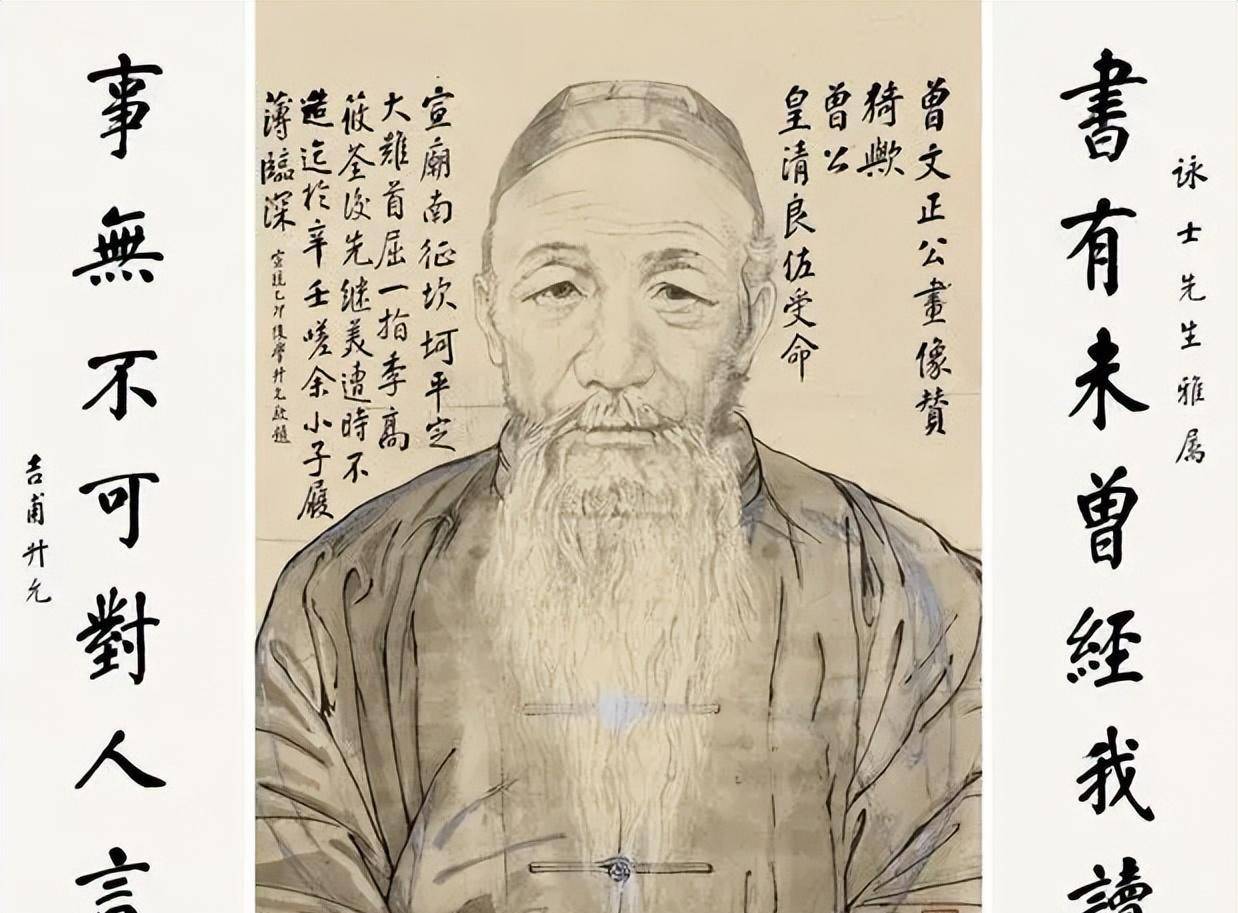 詠士先生雅属
書有未曾經我讀
曾文正公畫像賛
猗歟
曾公
皇清良佐受命
宣廟南征坎坷平定
大難首屈一指季高
筱荃後先继美遭時不
造迄於辛壬嗟余小子履
薄臨深
宣統乙卯後學升允敬題
事無不可對人言
吉甫升允